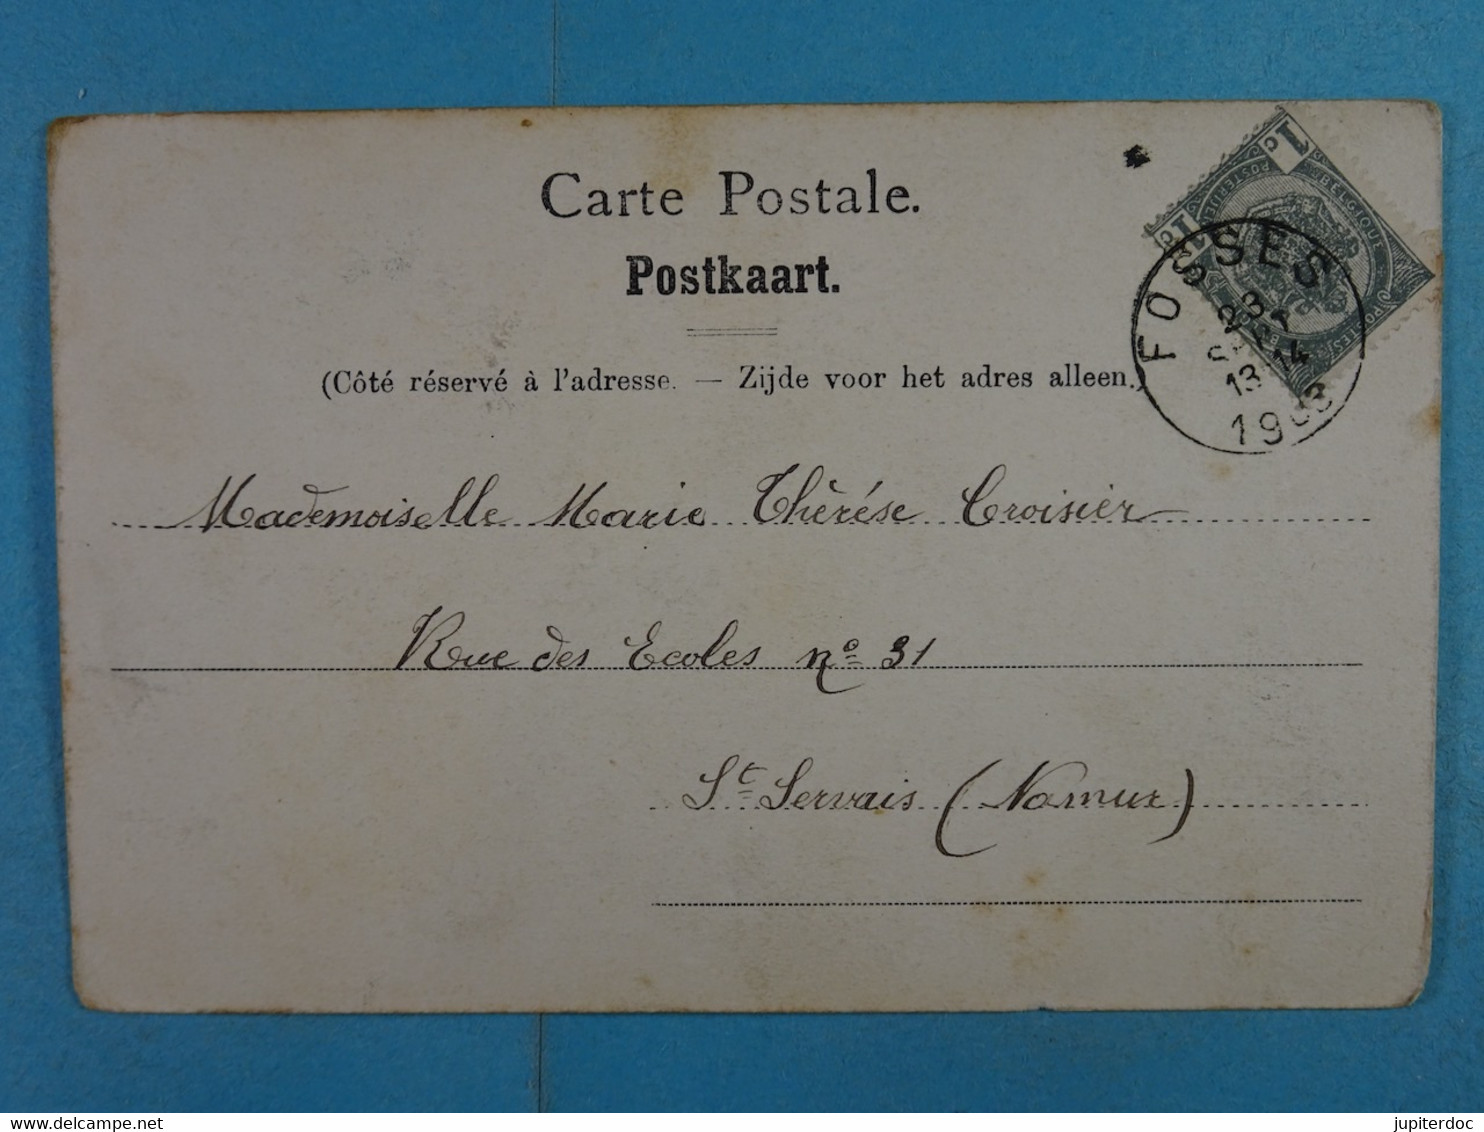 Carte Postale.
Postkaart.
(Côté réservé à l'adresse. — Zijde voor het adres alleen.)
FOSSES
23
13-14
1903
1c
1c
BELGIQUE
Mademoiselle Marie Thèrése Croisier
Rue des Ecoles nº 31
St Servais (Namur)
jupiterdoc
delcampe.net